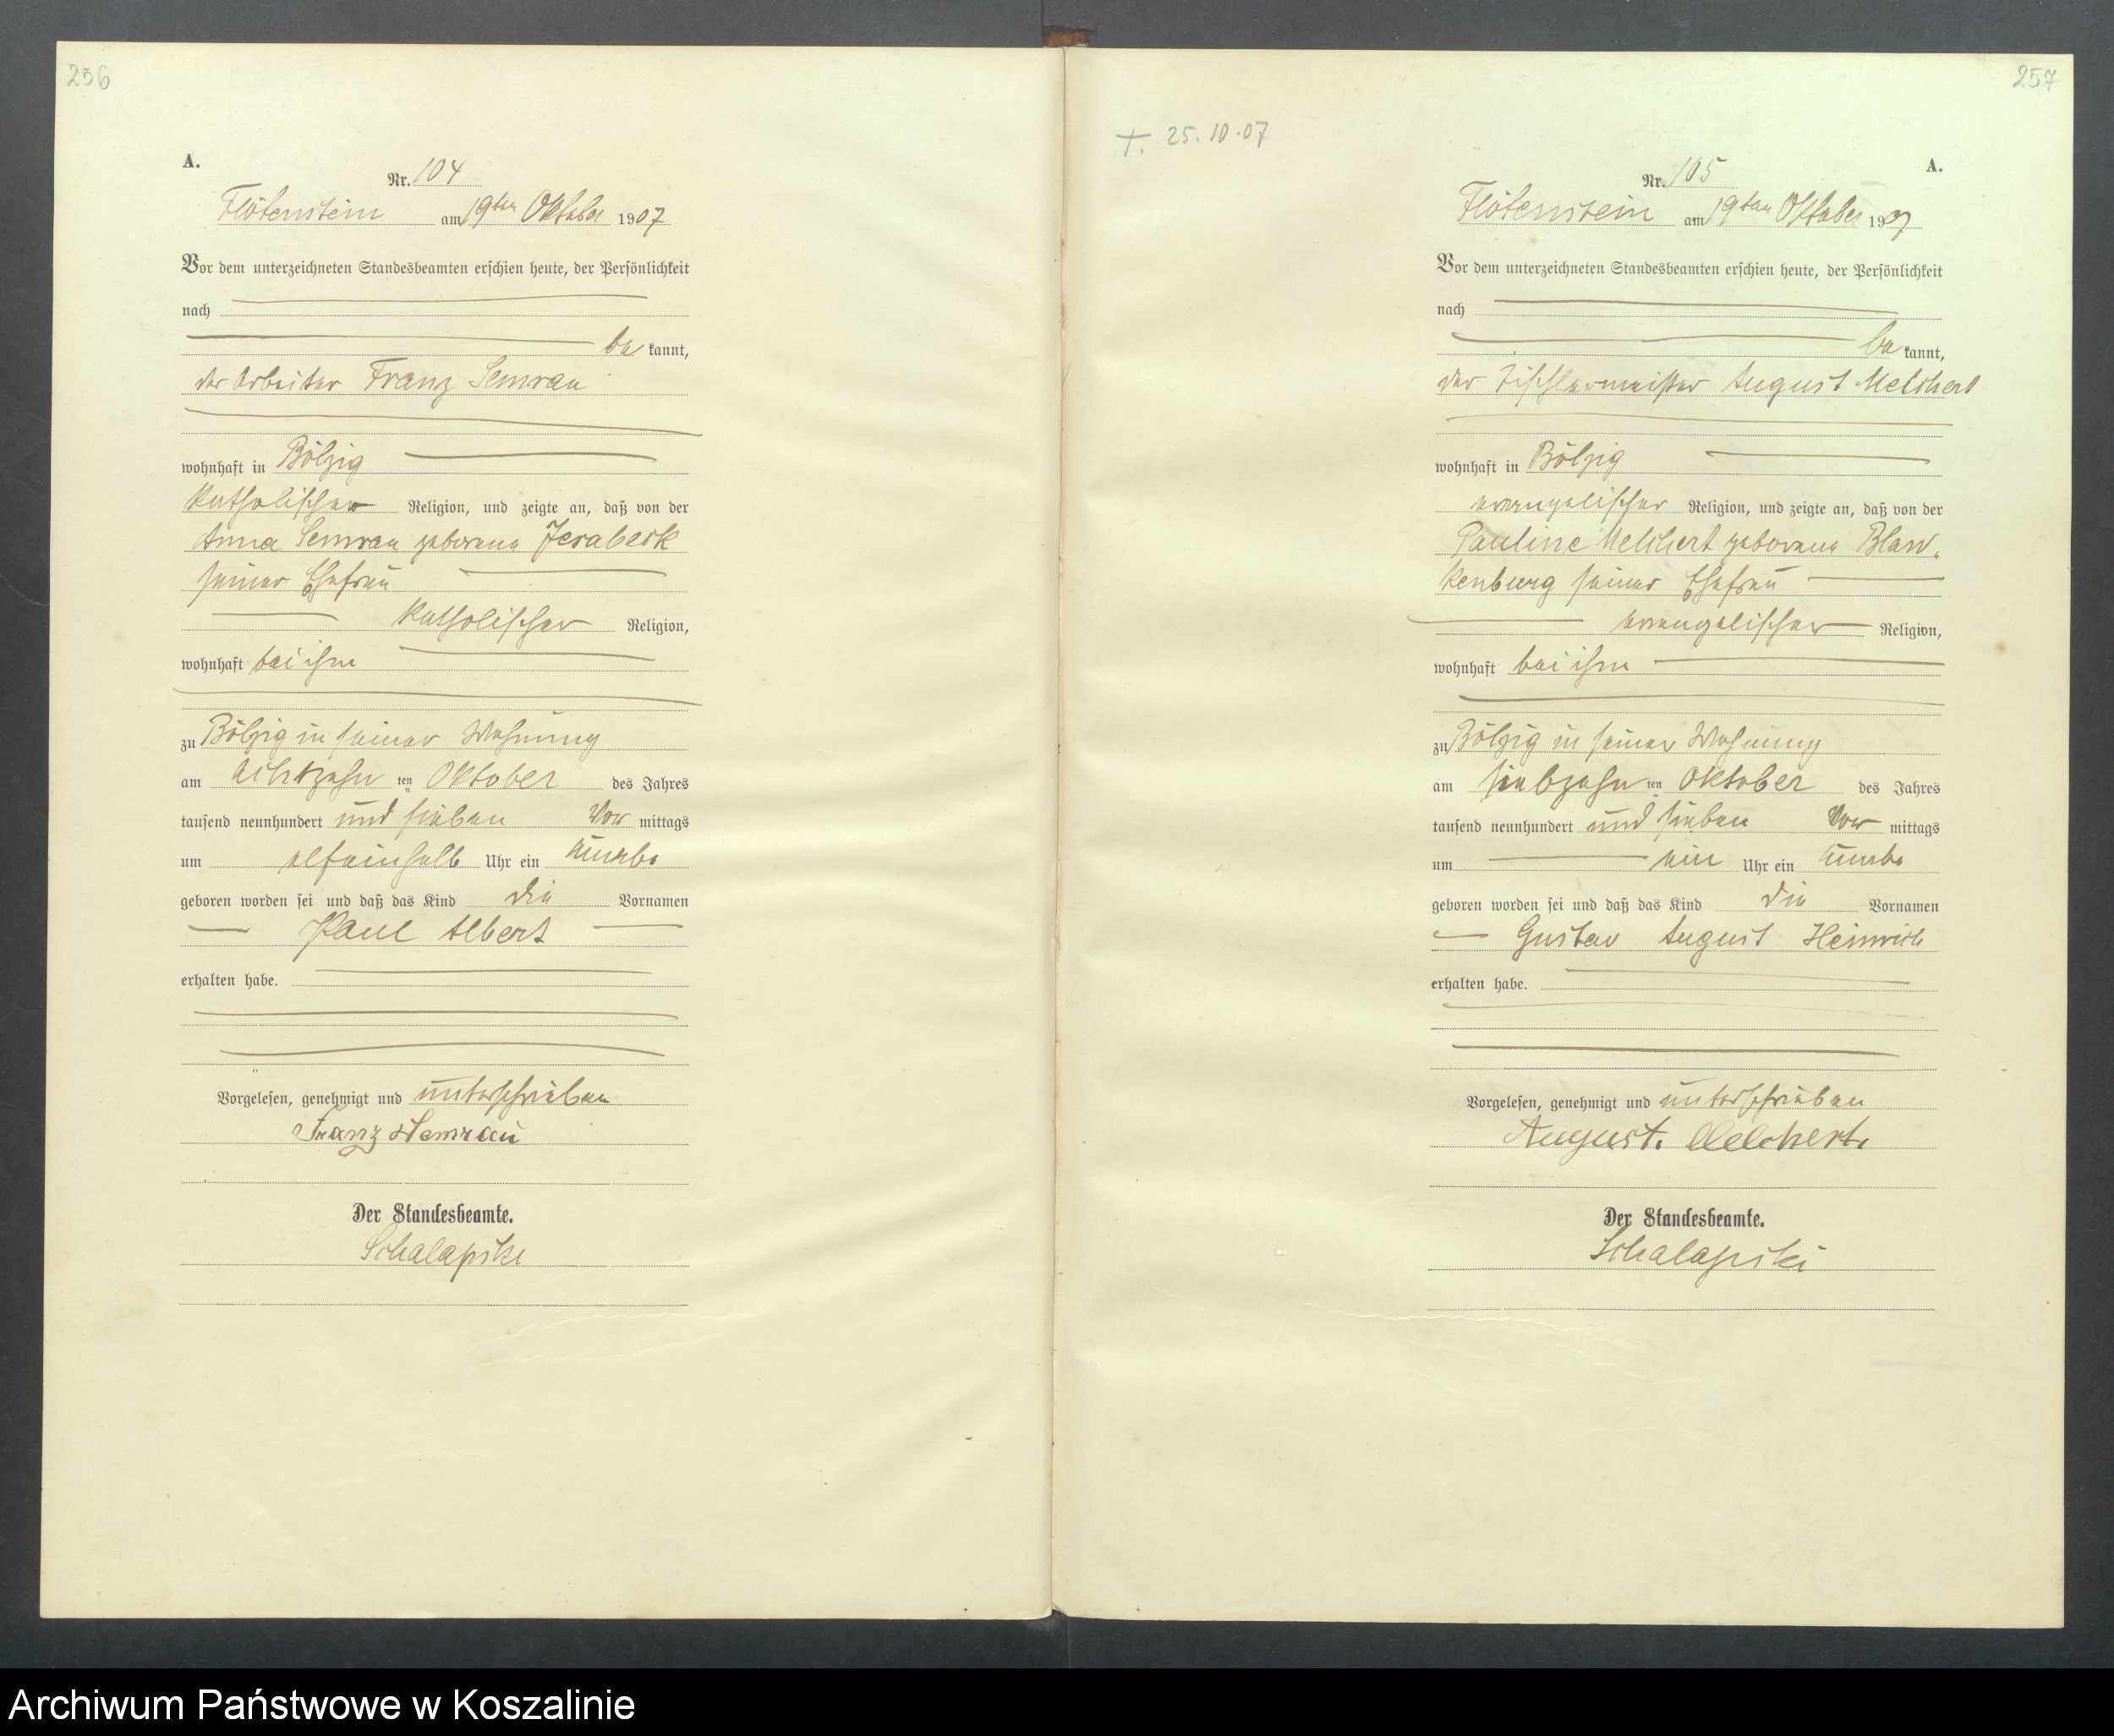 256
A.
Nr. 104
Flötenstein am 19ten Oktober 1907
Vor dem unterzeichneten Standesbeamten erschien heute, der Persönlichkeit
nach
be kannt,
der Arbeiter Franz Semrau
wohnhaft in Bölzig
katholischer Religion, und zeigte an, daß von der
Anna Semrau geborene Jerabeck
seiner Ehefrau
katholischer Religion,
wohnhaft bei ihm
zu Bölzig in seiner Wohnung
am achtzehn ten Oktober des Jahres
tausend neunhundert und sieben Vor mittags
um elfeinhalb Uhr ein Knabe
geboren worden sei und daß das Kind die Vornamen
Paul Albert
erhalten habe.
Vorgelesen, genehmigt und unterschrieben
Franz Semrau
Der Standesbeamte.
Schalapski
257
T. 25.10.07
Nr. 105
A.
Flötenstein am 19ten Oktober 1907
Vor dem unterzeichneten Standesbeamten erschien heute, der Persönlichkeit
nach
be kannt,
der Tischlermeister August Melchert
wohnhaft in Bölzig
evangelischer Religion, und zeigte an, daß von der
Pauline Melchert geborene Blan-
kenburg seiner Ehefrau
evangelischer Religion,
wohnhaft bei ihm
zu Bölzig in seiner Wohnung
am siebzehn ten Oktober des Jahres
tausend neunhundert und sieben Vor mittags
um ein Uhr ein Knabe
geboren worden sei und daß das Kind die Vornamen
Gustav August Heinrich
erhalten habe.
Vorgelesen, genehmigt und unterschrieben
August. Melchert.
Der Standesbeamte.
Schalapski
Archiwum Państwowe w Koszalinie